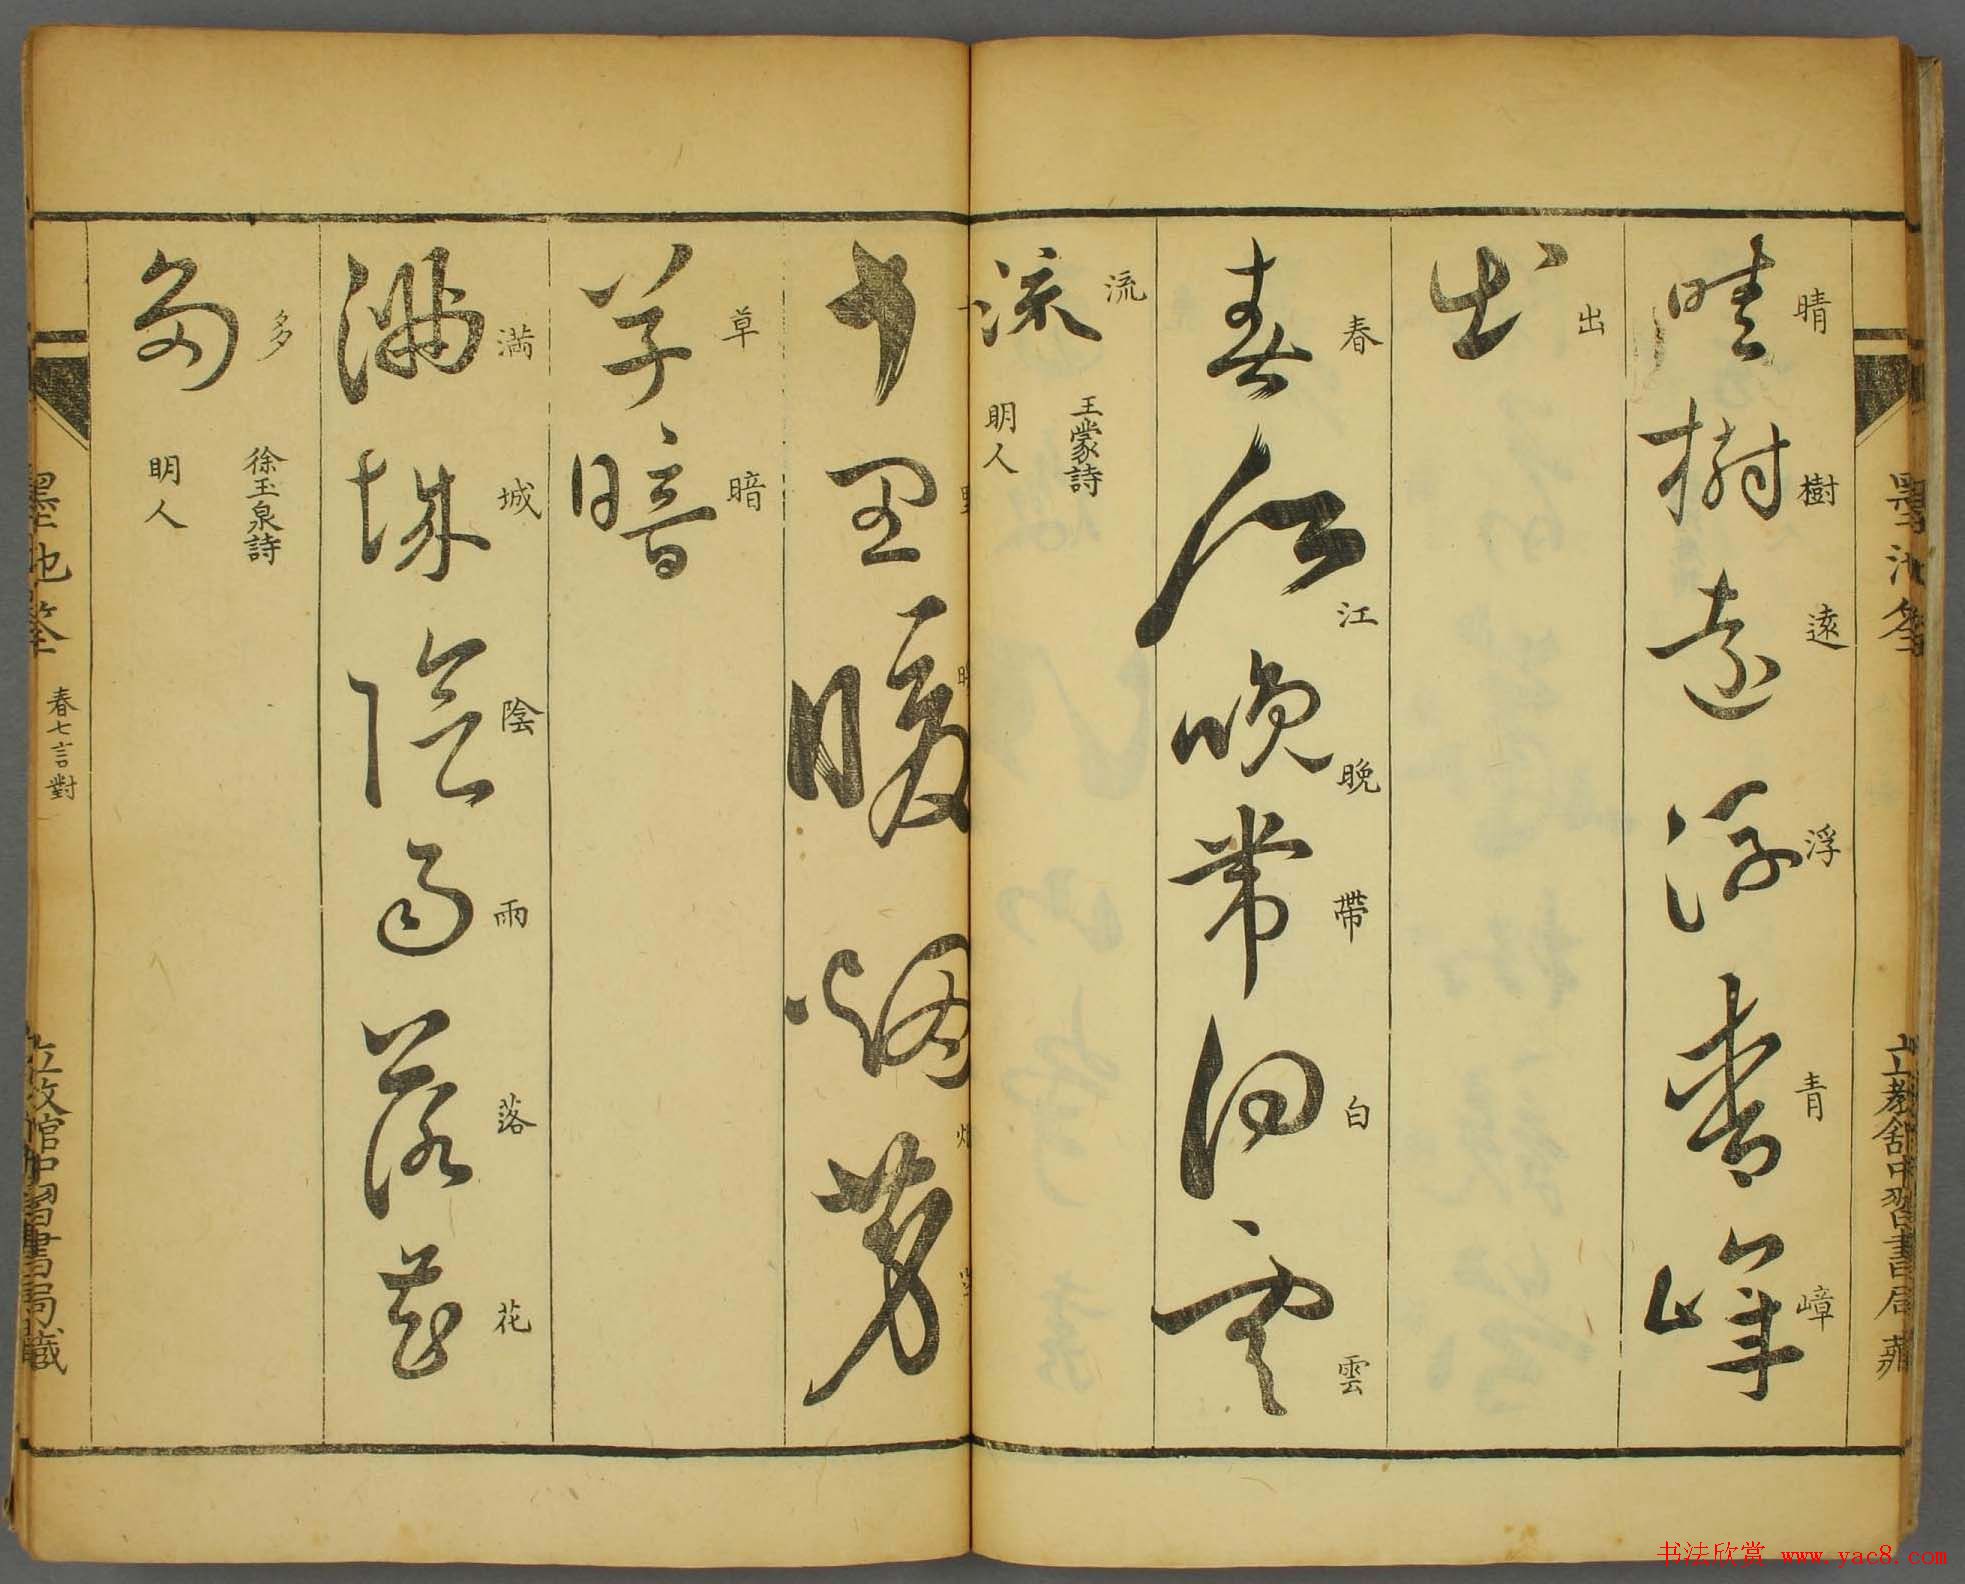 晴樹遠浮青嶂
晴樹遠浮青嶂
出
出
春江晚帶白雲
春江晚帶白雲
流
流
王蒙詩
明人
十里暖烟芳
草暗
草暗
滿城陰雨落花
満城陰雨落花
多
多
徐玉泉詩
明人
墨池筌
春七言對
立教館中習書局藏
书法欣赏 www.yac8.com